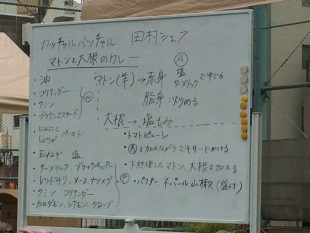 カッチャルバッチャル 田村シェフ
マトンと大根のカレー
・油
・コリアンダー
・クミン
・ブラウンマスタード
・にんにく
しょうが ペースト
・玉ねぎ 塩
・ターメリック、ブラックペッパー
・レッドチリ、メース、ナツメグ
・クミン コリアンダー
・カルダモン、シナモン、クローブ
Ⓐ
マトン(羊)→赤身 塩 ターメリックでゆでる
脂身→炒める
大根→塩もみ
・トマトピューレ
・Ⓐを加えながらミキサーにかける
・下処理したマトン、大根を加える
・パクチー ネパール山椒